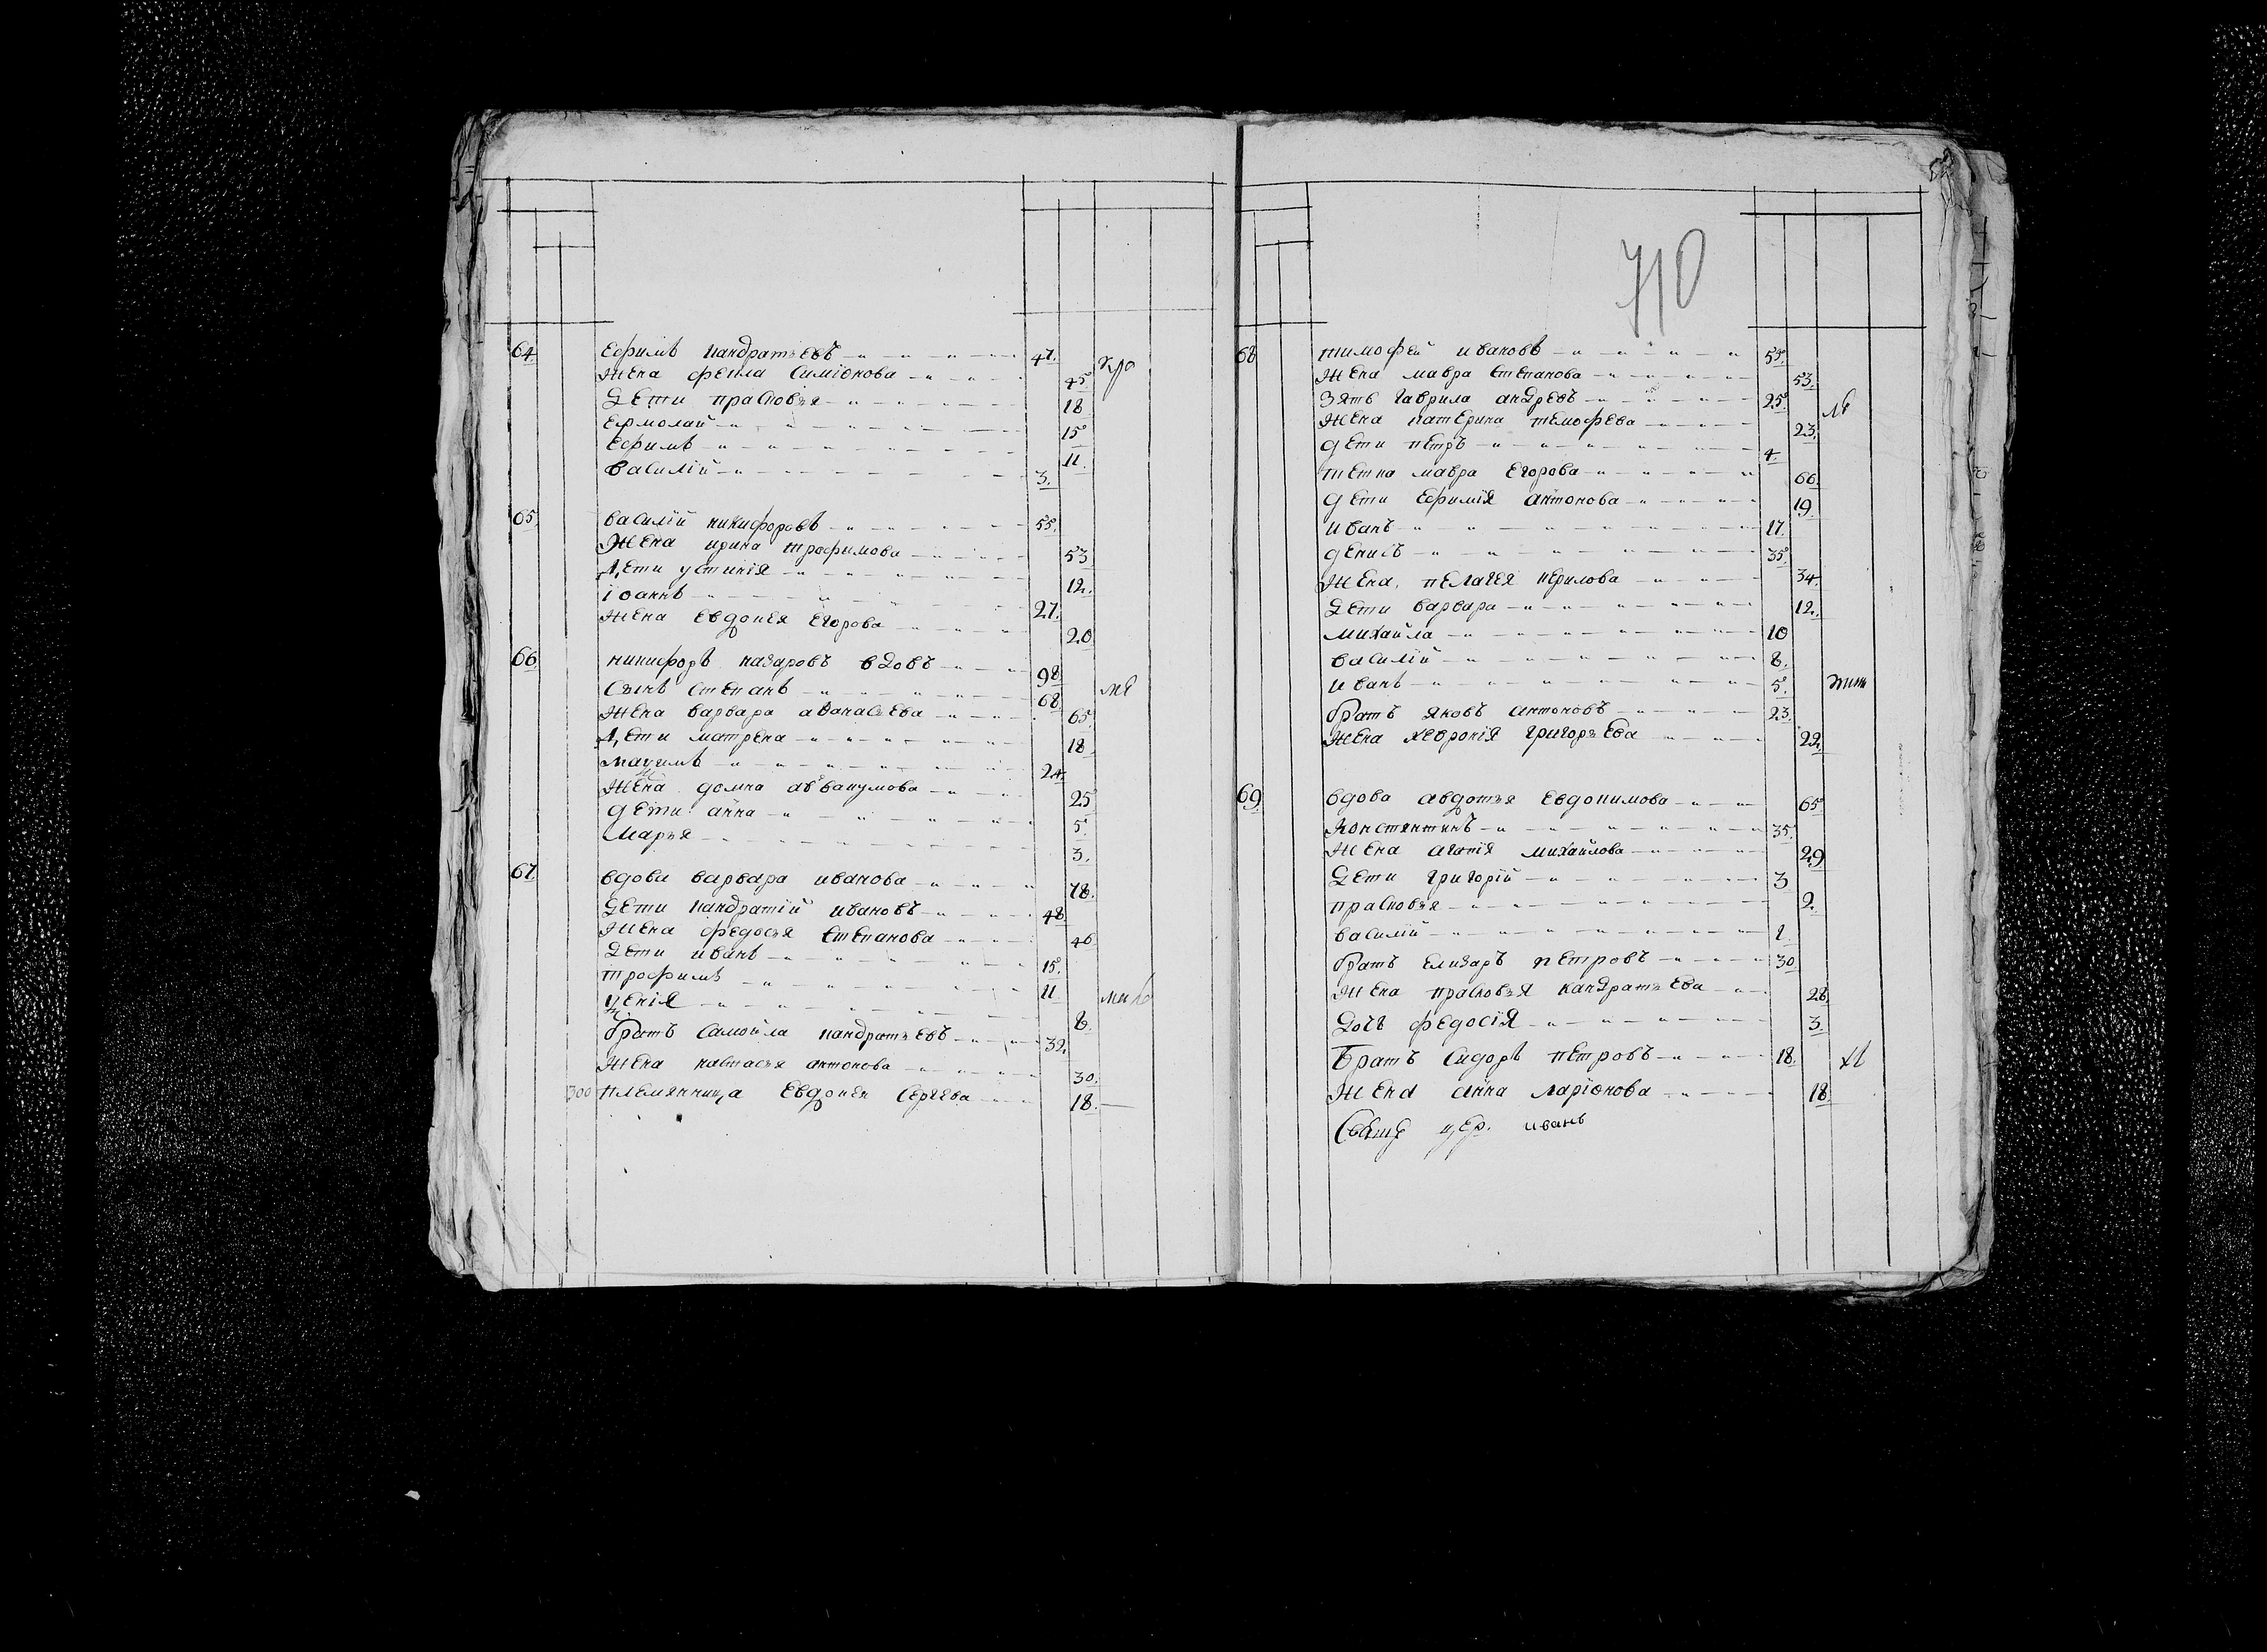 64 Ефимъ кандратьевъ 47.
жена фекла Симіонова 45
Дети прасковья 18
Ермолай 15
Ефимъ 11.
Василій 3.
65. Василій никифоровъ 55.
Жена ирина трофимова 53
Дети устинія 12.
іоаннъ 27.
жена Евдокея Егорова 20
66. никифоръ назаровъ вдовъ 98
Сынъ Степанъ 68
жена варвара аѳанасьева 65
Дети матрена 18
24.
Жена домна аввакумова 25
дети анна 5
Марья 3.
67. вдова варвара иванова 78.
Дети кандратій ивановъ 48
жена федосья Степанова 46
Дети иванъ 15.
трофимъ 11
8.
братъ Самойла кандратьевъ 32.
жена настасья антонова 30.
300 племянница Евдокея Сергева 18.
710
68 тимофей ивановъ 55
жена мавра Степанова 53.
Зять гаврила андревъ 25
жена катерина темофева 23.
дети петръ 4.
тетка мавра Егорова 66
дети Ефимія антонова 19
иванъ 17.
денисъ 35
жена пелагея кирилова 34.
Дети варвара 12.
михайла 10
василій 8.
иванъ 5.
братъ яковъ антоновъ 23.
жена хевронія григорьева 22.
69. вдова авдотья Евдокимова 65
Константинъ 35.
жена михайлова 29
Дети григорій 3
прасковья 2.
василій 1.
братъ Елизаръ петровъ 30
жена прасковья кандратьева 28.
Дочь федосія 3.
Братъ Сидоръ петровъ 18.
жена анна ларіонова 18
иванъ